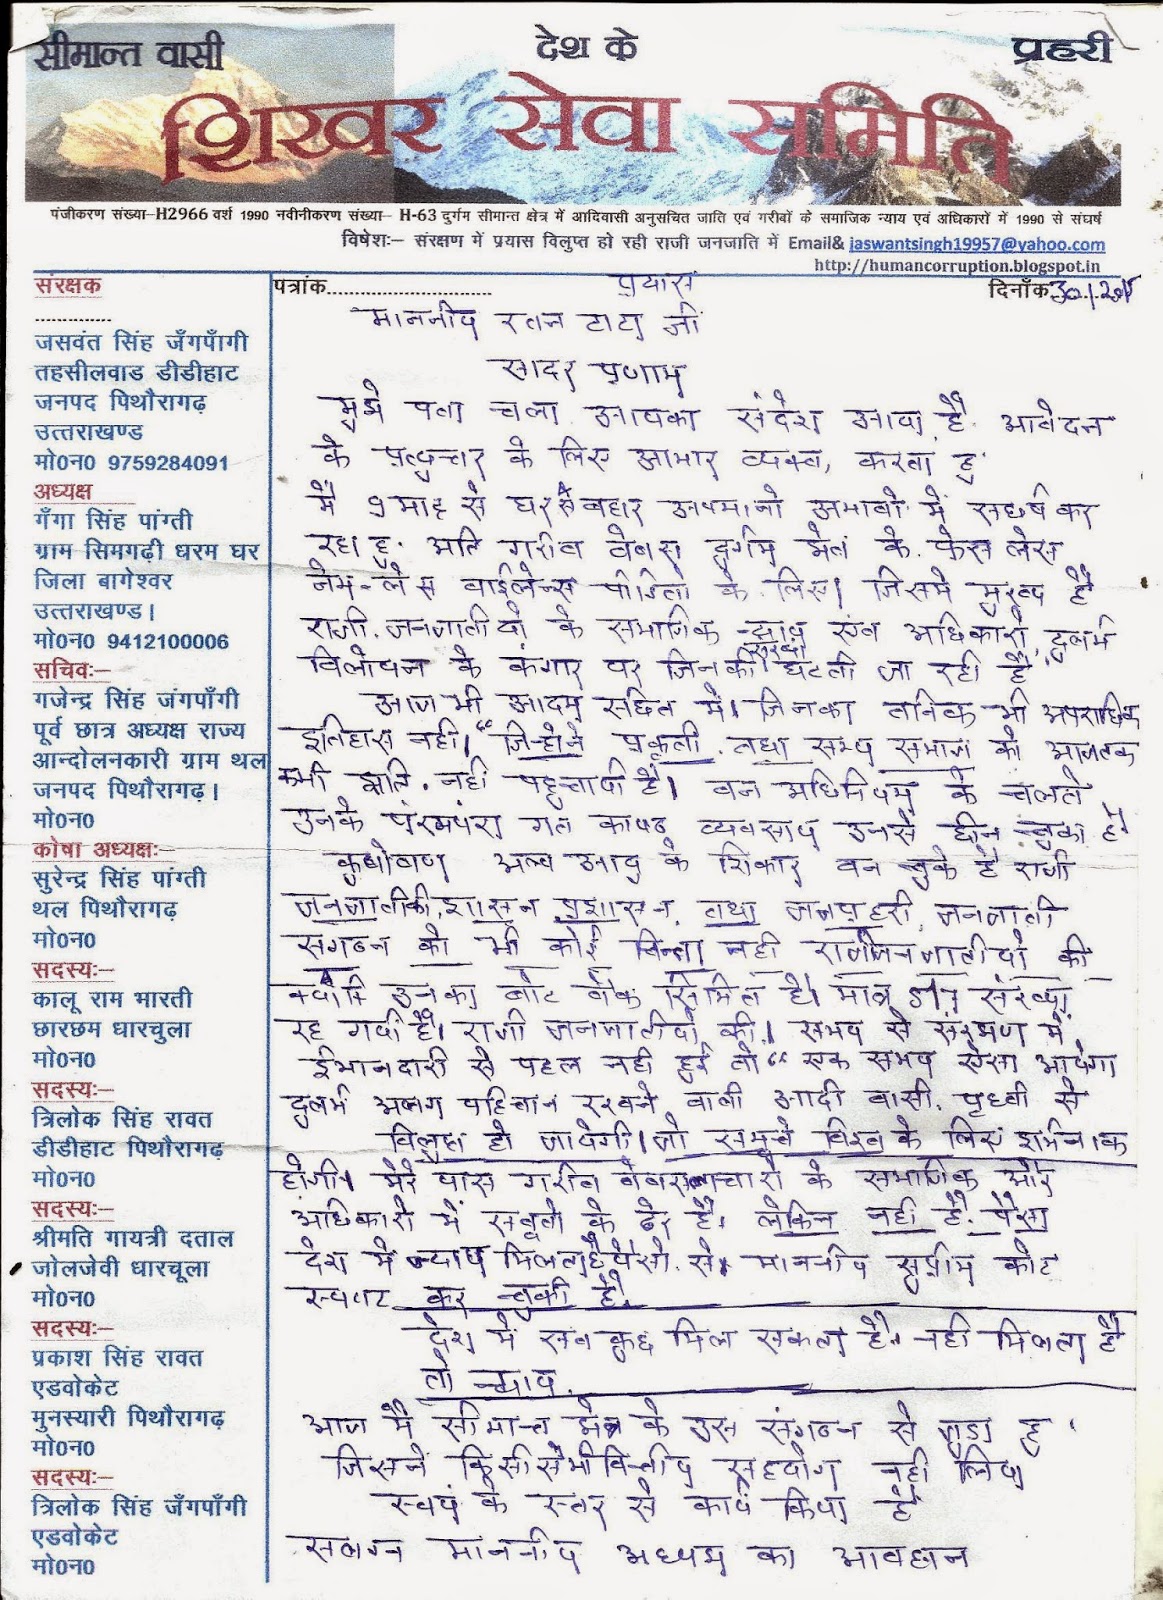 सीमान्त वासी देश के प्रहरी
शिखर सेवा समिति
पंजीकरण संख्या–H2966 वर्ष 1990 नवीनीकरण संख्या– H-63 दुर्गम सीमान्त क्षेत्र में आदिवासी अनुसचित जाति एवं गरीबों के समाजिक न्याय एवं अधिकारों में 1990 से संघर्ष
विषेशः– संरक्षण में प्रयास विलुप्त हो रही राजी जनजाति में Email& jaswantsingh19957@yahoo.com
http://humancorruption.blogspot.in
संरक्षक
..............
जसवंत सिंह जँगपाँगी
तहसीलवाड डीडीहाट
जनपद पिथौरागढ़
उत्तराखण्ड
मो0न0 9759284091
अध्यक्ष
गँगा सिंह पांग्ती
ग्राम सिमगढ़ी धरम घर
जिला बागेश्वर
उत्तराखण्ड।
मो0न0 9412100006
सचिवः–
गजेन्द्र सिंह जंगपाँगी
पूर्व छात्र अध्यक्ष राज्य
आन्दोलनकारी ग्राम थल
जनपद पिथौरागढ़।
मो0न0
कोषा अध्यक्षः–
सुरेन्द्र सिंह पांग्ती
थल पिथौरागढ़
मो0न0
सदस्यः–
कालू राम भारती
छारछम धारचुला
मो0न0
सदस्यः–
त्रिलोक सिंह रावत
डीडीहाट पिथौरागढ़
मो0न0
सदस्यः–
श्रीमति गायत्री दताल
जोलजेवी धारचूला
मो0न0
सदस्यः–
प्रकाश सिंह रावत
एडवोकेट
मुनस्यारी पिथौरागढ़
मो0न0
सदस्यः–
त्रिलोक सिंह जँगपाँगी
एडवोकेट
मो0न0
पत्रांक............................ प्रयास दिनाँक
माननीय रतन टाटा जी
सादर प्रणाम
मुझे पता चला आपका संदेश आया है आवेदन
के प्रत्युत्तर के लिए आभार व्यक्त, करता हु
मै 9 माह से घर से बहार अपमानो अभावो में संघर्ष कर
रहा हु. अति गरीब वेवस दुर्गम क्षेत्र के. फेस लेस
नेम-लेस वाईलेन्स पीडितो के लिए। जिसमे मुख्य है
राजी. जनजातीयो के समाजिक न्याय एंव अधिकारो, दुलर्भ
विलोपन के कंगार पर जिनकी संख्या घटती जा रही है
आज भी आदम सहित में। जिनका तनिक भी अपराधिक
इतिहास नही। "जिन्होने प्रकृती. तथा सभ्य समाज को आजतक
कभी क्षति. नही पहुचायी है। वन अधिनियम के चलते
उनके परंमपंरा गत काष्ठ व्यवसाय उनसे छीन चुका है।
कुपोषण अल्प आयु के शिकार वन चुके है राजी
जनजातीकी, शासन प्रशासन, तथा जनप्रहरी, जनजाती
संगठन को भी कोई चिन्ता नही राजीजनजातीयो की
क्योकि उनका वोट वैंक सिमित है। मात्र 517 संख्या
रह गयी है। राजी जनजातीयो की। समय से संरक्षण में
ईमानदारी से पहल नही हुई तो "एक समय ऐसा आयेगा
दुलर्भ अलग पहिचान रखने वाली आदी वासी. पृथ्वी से
विलुप्त हो जायेगी। जो समूचे विश्व के लिए शर्मनाक
होगी। मेरे पास गरीव वेवस लाचारो के समाजिक और
अधिकारो में सबूतो के ढेर है। लेकिन नही है. पैसा
देश मे न्याय मिलता है पैसो. से। माननीय सुप्रीम कोट
स्पष्ट कर चुकी है।
देश में सब कुछ मिल सकता है। नही मिलता है
तो न्याय.
आज मै सीमान्त क्षेत्र के उस संगठन से जुडा हु
जिसने किसी से भी वित्तीय सहयोग नही लिया
स्वयं के स्तर से कार्य किया है
सलग्न माननीय अध्यक्ष का आवहान